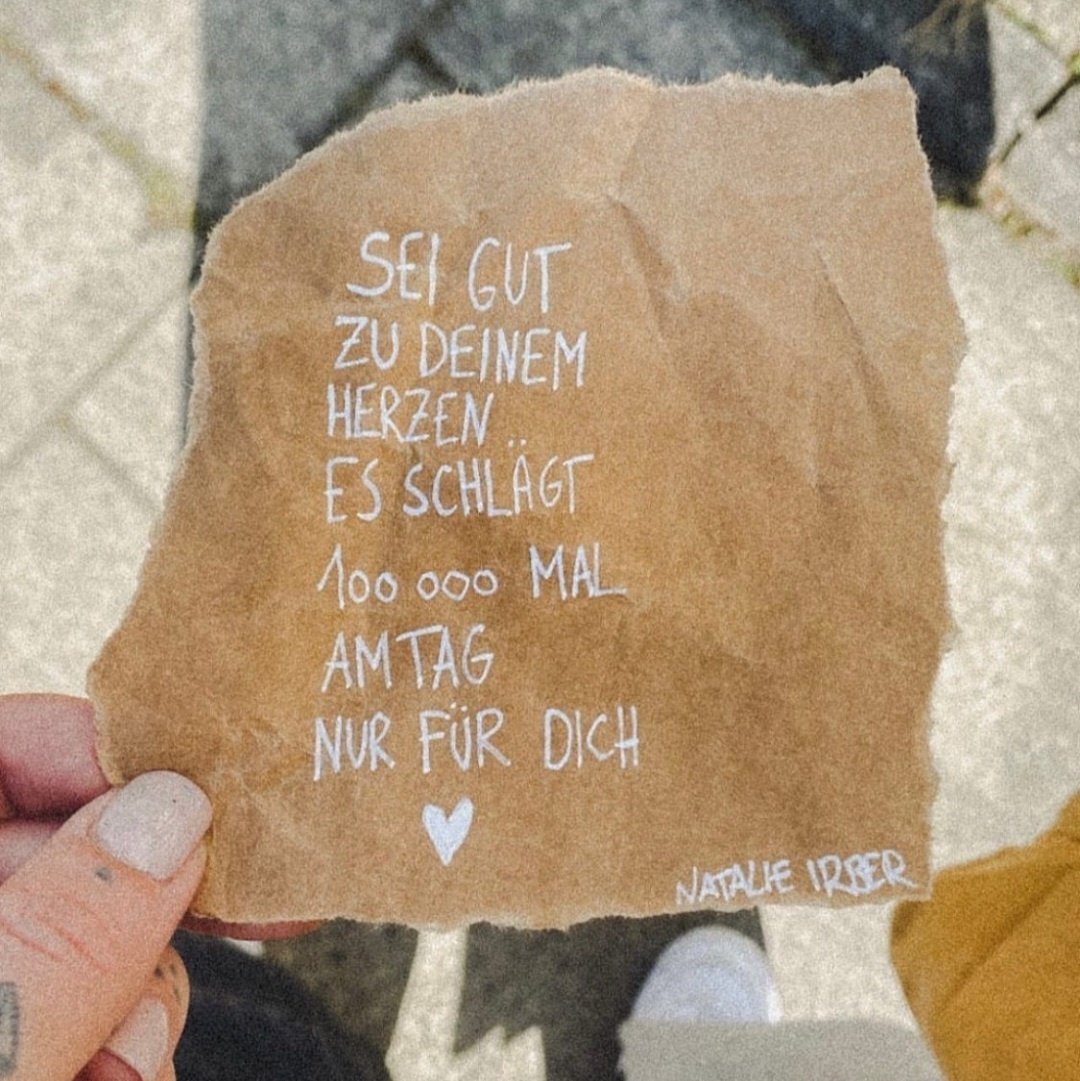 SEI GUT
ZU DEINEM
HERZEN
ES SCHLÄGT
100 000 MAL
AM TAG
NUR FÜR DICH
NATALIE IRBER